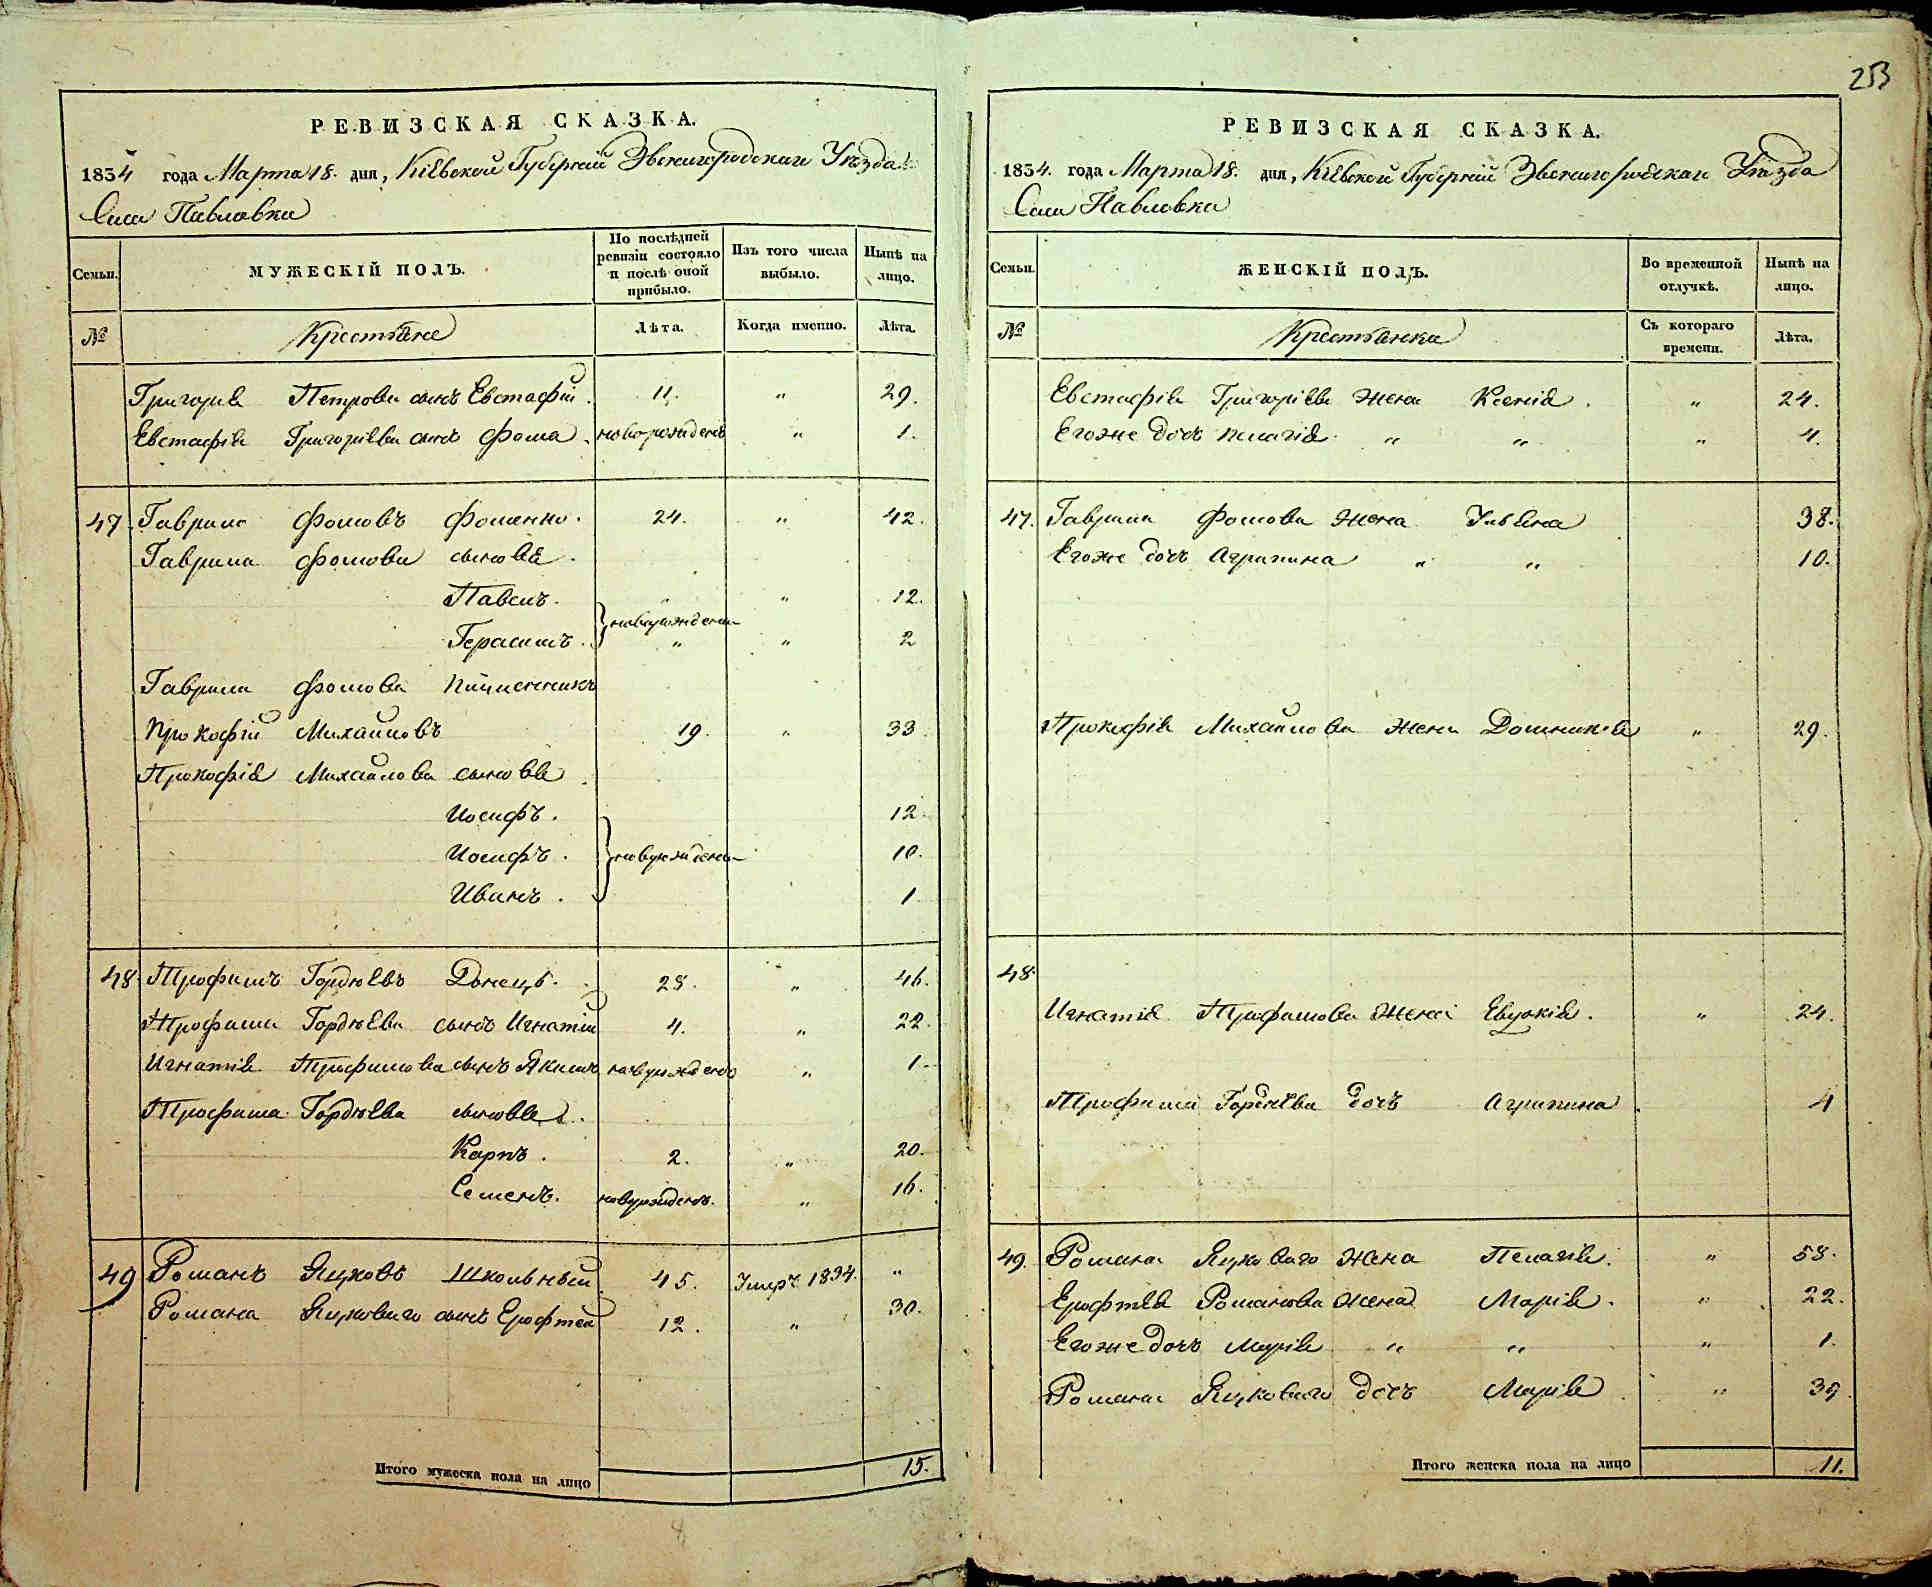 253
РЕВИЗСКАЯ СКАЗКА.
1834 года Марта 18. дня, Кіевской Губерніи Звенигородскаго Уѣзда
Села Павловки
Семьи.
МУЖЕСКІЙ ПОЛЪ.
По послѣдней ревизіи состояло и послѣ оной прибыло.
Изъ того числа выбыло.
Нынѣ на лицо.
№
Крестьяне
Лѣта.
Когда именно.
Лѣта.
Григорія Петрова сынъ Евстафій. 11. " 29.
Евстафія Григоріева сынъ Фома. новорожденъ " 1.
47 Гаврило Фомовъ Фоменко. 24. " 42.
Гаврила Фомова сыновья.
Павелъ. " " 12.
новорождены
Герасимъ. " " 2
Гаврила Фомова
Прокофій Михайловъ 19. " 33.
Прокофія Михайлова сыновья
Іосифъ. 12.
Іосифъ. новорождены 10.
Иванъ. 1
48. Трофимъ Гордѣевъ Донецъ. 28. " 46.
Трофима Гордѣева сынъ Игнатій 4. " 22.
Игнатія Трофимова сынъ Якимъ новорожденъ " 1.
Трофима Гордѣева сыновья.
Карпъ. 2. " 20.
Семенъ. новорожденъ. " 16.
49 Романъ Яцковъ Школьный 45. Умръ 1834. "
Романа Яцковаго сынъ Ерофтей 12. " 30.
Итого мужеска пола на лицо 15.
РЕВИЗСКАЯ СКАЗКА.
1834. года Марта 18. дня, Кіевской Губерніи Звенигородскаго Уѣзда
Села Павловки
Семьи.
ЖЕНСКІЙ ПОЛЪ.
Во временной отлучкѣ.
Нынѣ на лицо.
№
Крестьянки
Съ котораго времени.
Лѣта.
Евстафія Григоріева жена Ксенія. " 24.
Егоже дочь Пелагія " " " 4.
47. Гаврила Фомова жена Ульяна 38.
Егоже дочь Агрипина " " 10.
Прокофія Михайлова жена Домникія " 29.
48
Игнатія Трофимова жена Евдокія. " 24.
Трофима Гордѣева дочь Агрипина. 4
49. Романа Яцковаго жена Пелагія. " 58.
Ерофтея Романова жена Марія. " 22.
Егоже дочь Марія " " " 1.
Романа Яцковаго дочь Марія " 39.
Итого женска пола на лицо 11.